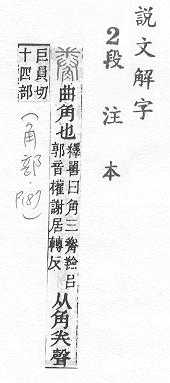 說文解字
2段注本
觠 曲角也 釋嘼曰角三觠羷
郭音權謝居轉反
从角𢍏聲
巨員切
十四部
(角部.P187)